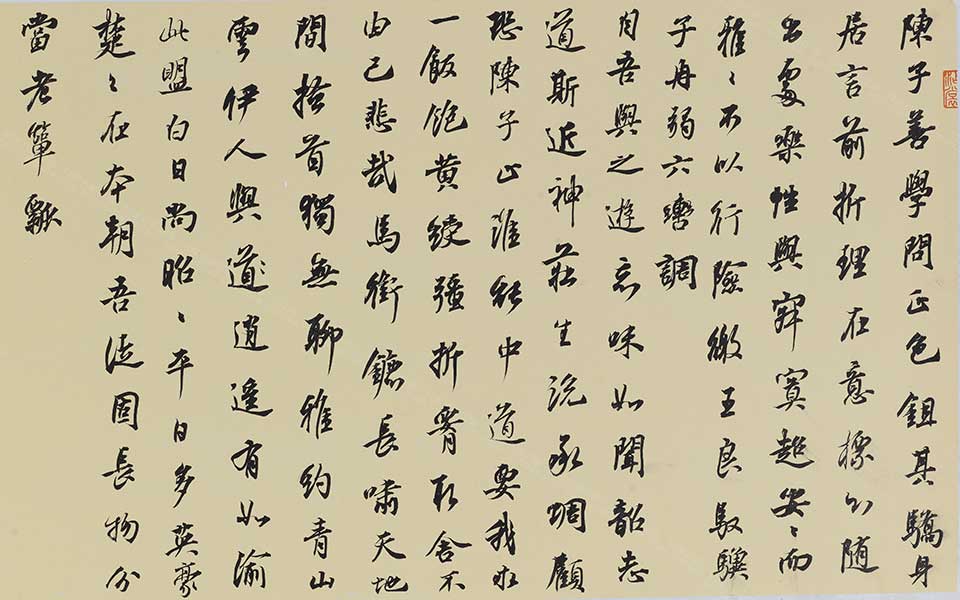 陳子善學問正色鉏其驕身
居言前折理在意標不随
出處樂性與寂寞超安々而
雅々不以行險徼王良馭驥
子冉弱六轡調
自吾與之遊忘味如聞韶志
道斯近神莊生說承蜩顧
恐陳子止誰能中道要我求
一飯飽黄綬彊折腰取舍不
由己悲哉馬銜鑣長嘯天地
間搔首獨無聊雅約青山
雲伊人與道逍遥有如渝
此盟白日尚昭々平日多英豪
楚々在本朝吾徒固長物分
當老簞瓢